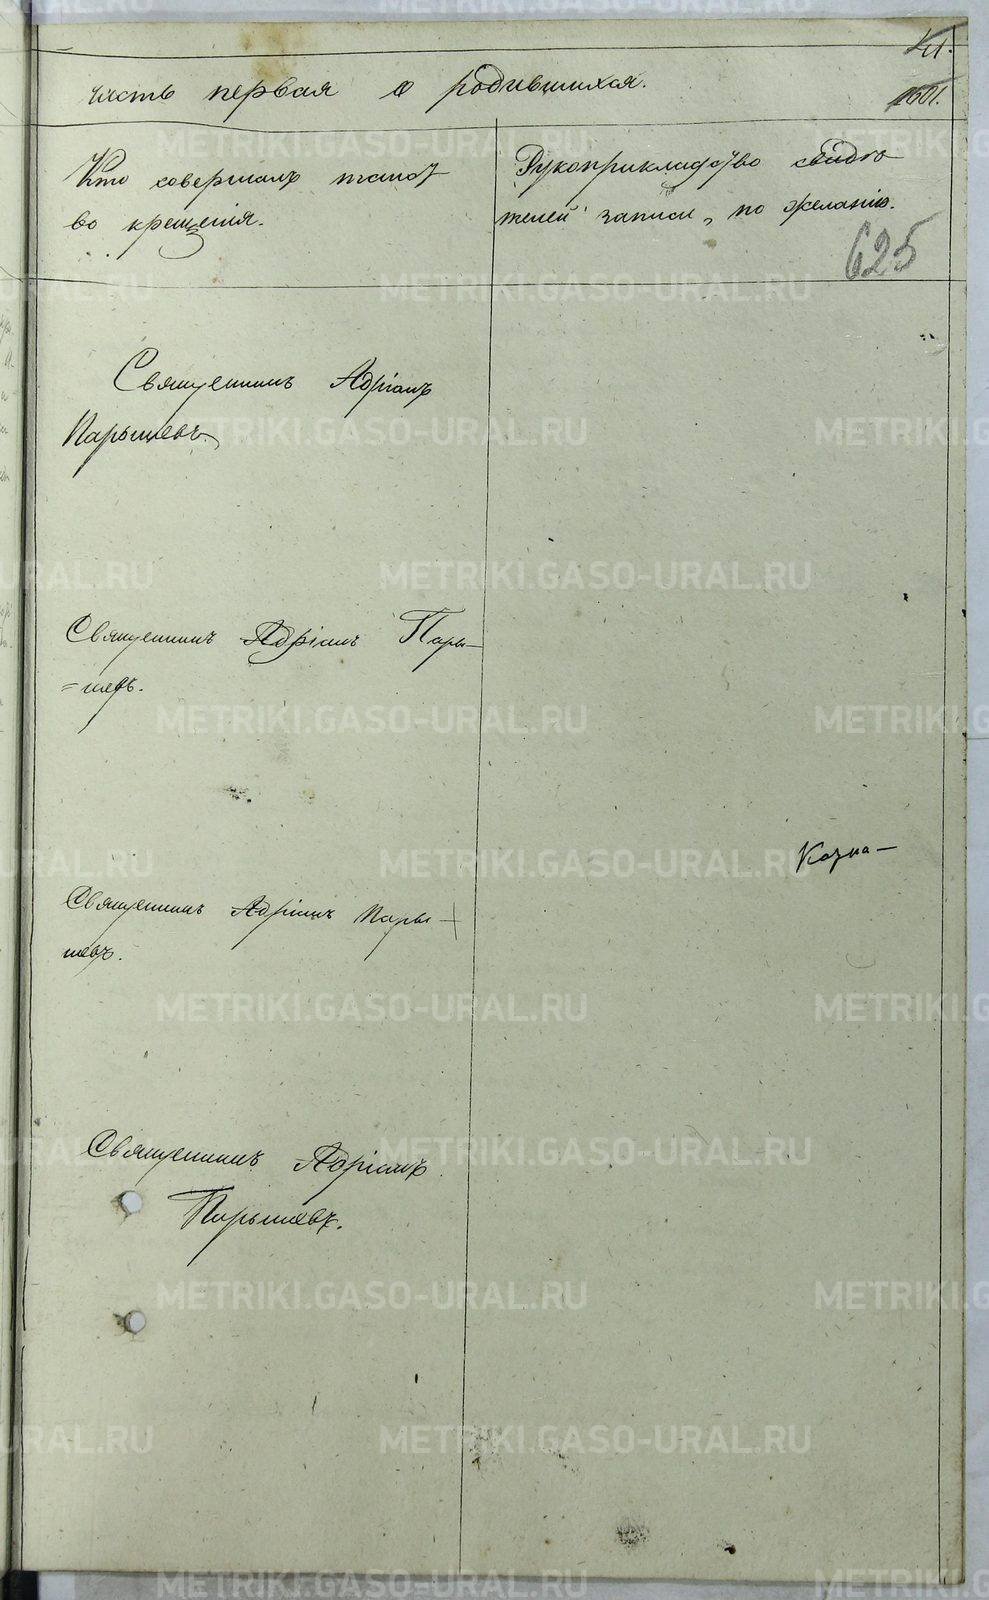 41.
часть первая о родившихся.
Кто совершалъ таинст
во крещенія.
Рукоприкладство свидѣ
телей записи, по желанію.
625
Священникъ Адріанъ
Парышевъ.
Священникъ Адріанъ Пары-
=шевъ.
Казна-
Священникъ Адріанъ Пары-
шевъ.
Священникъ Адріанъ
Парышевъ.
METRIKI.GASO-URAL.RU